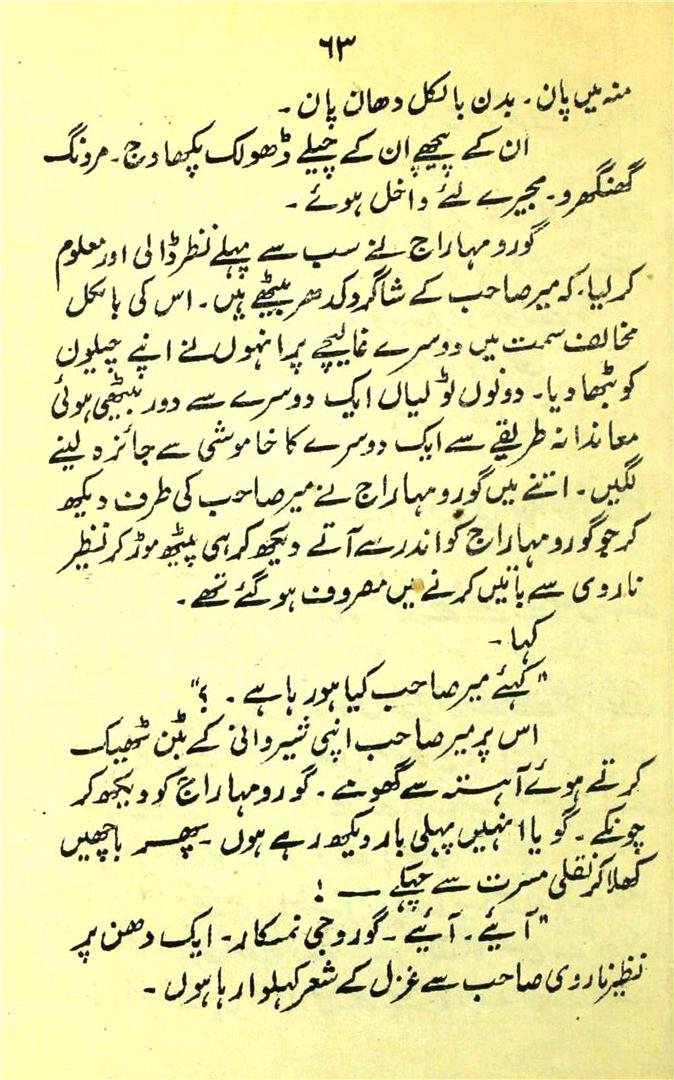 ۶۳
منہ میں پان۔ بدن بالکل دھان پان۔
ان کے پیچھے ان کے چیلے ڈھولک پکھاوج۔ مردنگ
گھنگھرو۔ مجیرے لئے داخل ہوئے۔
گورو مہاراج نے سب سے پہلے نظر ڈالی اور معلوم
کر لیا۔ کہ میر صاحب کے شاگرد کدھر بیٹھے ہیں۔ اس کی بالکل
مخالف سمت میں دوسرے غالیچے پر انہوں نے اپنے چیلوں
کو بٹھا دیا۔ دونوں ٹولیاں ایک دوسرے سے دور بیٹھی ہوئی
معاندانہ طریقے سے ایک دوسرے کا خاموشی سے جائزہ لینے
لگیں۔ اتنے میں گورو مہاراج نے میر صاحب کی طرف دیکھ
کر جو گورو مہاراج کو اندر سے آتے دیکھ کر ہی پیٹھ موڑ کر نظیر
ناروی سے باتیں کرنے میں مصروف ہو گئے تھے۔
کہا۔
"کہئے میر صاحب کیا ہو رہا ہے۔ ؟"
اس پر میر صاحب اپنی شیروانی کے بٹن ٹھیک
کرتے ہوئے آہستہ سے گھومے۔ گورو مہاراج کو دیکھ کر
چونکے۔ گویا انہیں پہلی بار دیکھ رہے ہوں۔ پھر باچھیں
کھلا کر نقلی مسرت سے چہکے — !
"آیئے۔ آیئے۔ گورو جی نمسکار۔ ایک دھن پر
نظیر ناروی صاحب سے غزل کے شعر کہلوا رہا ہوں۔